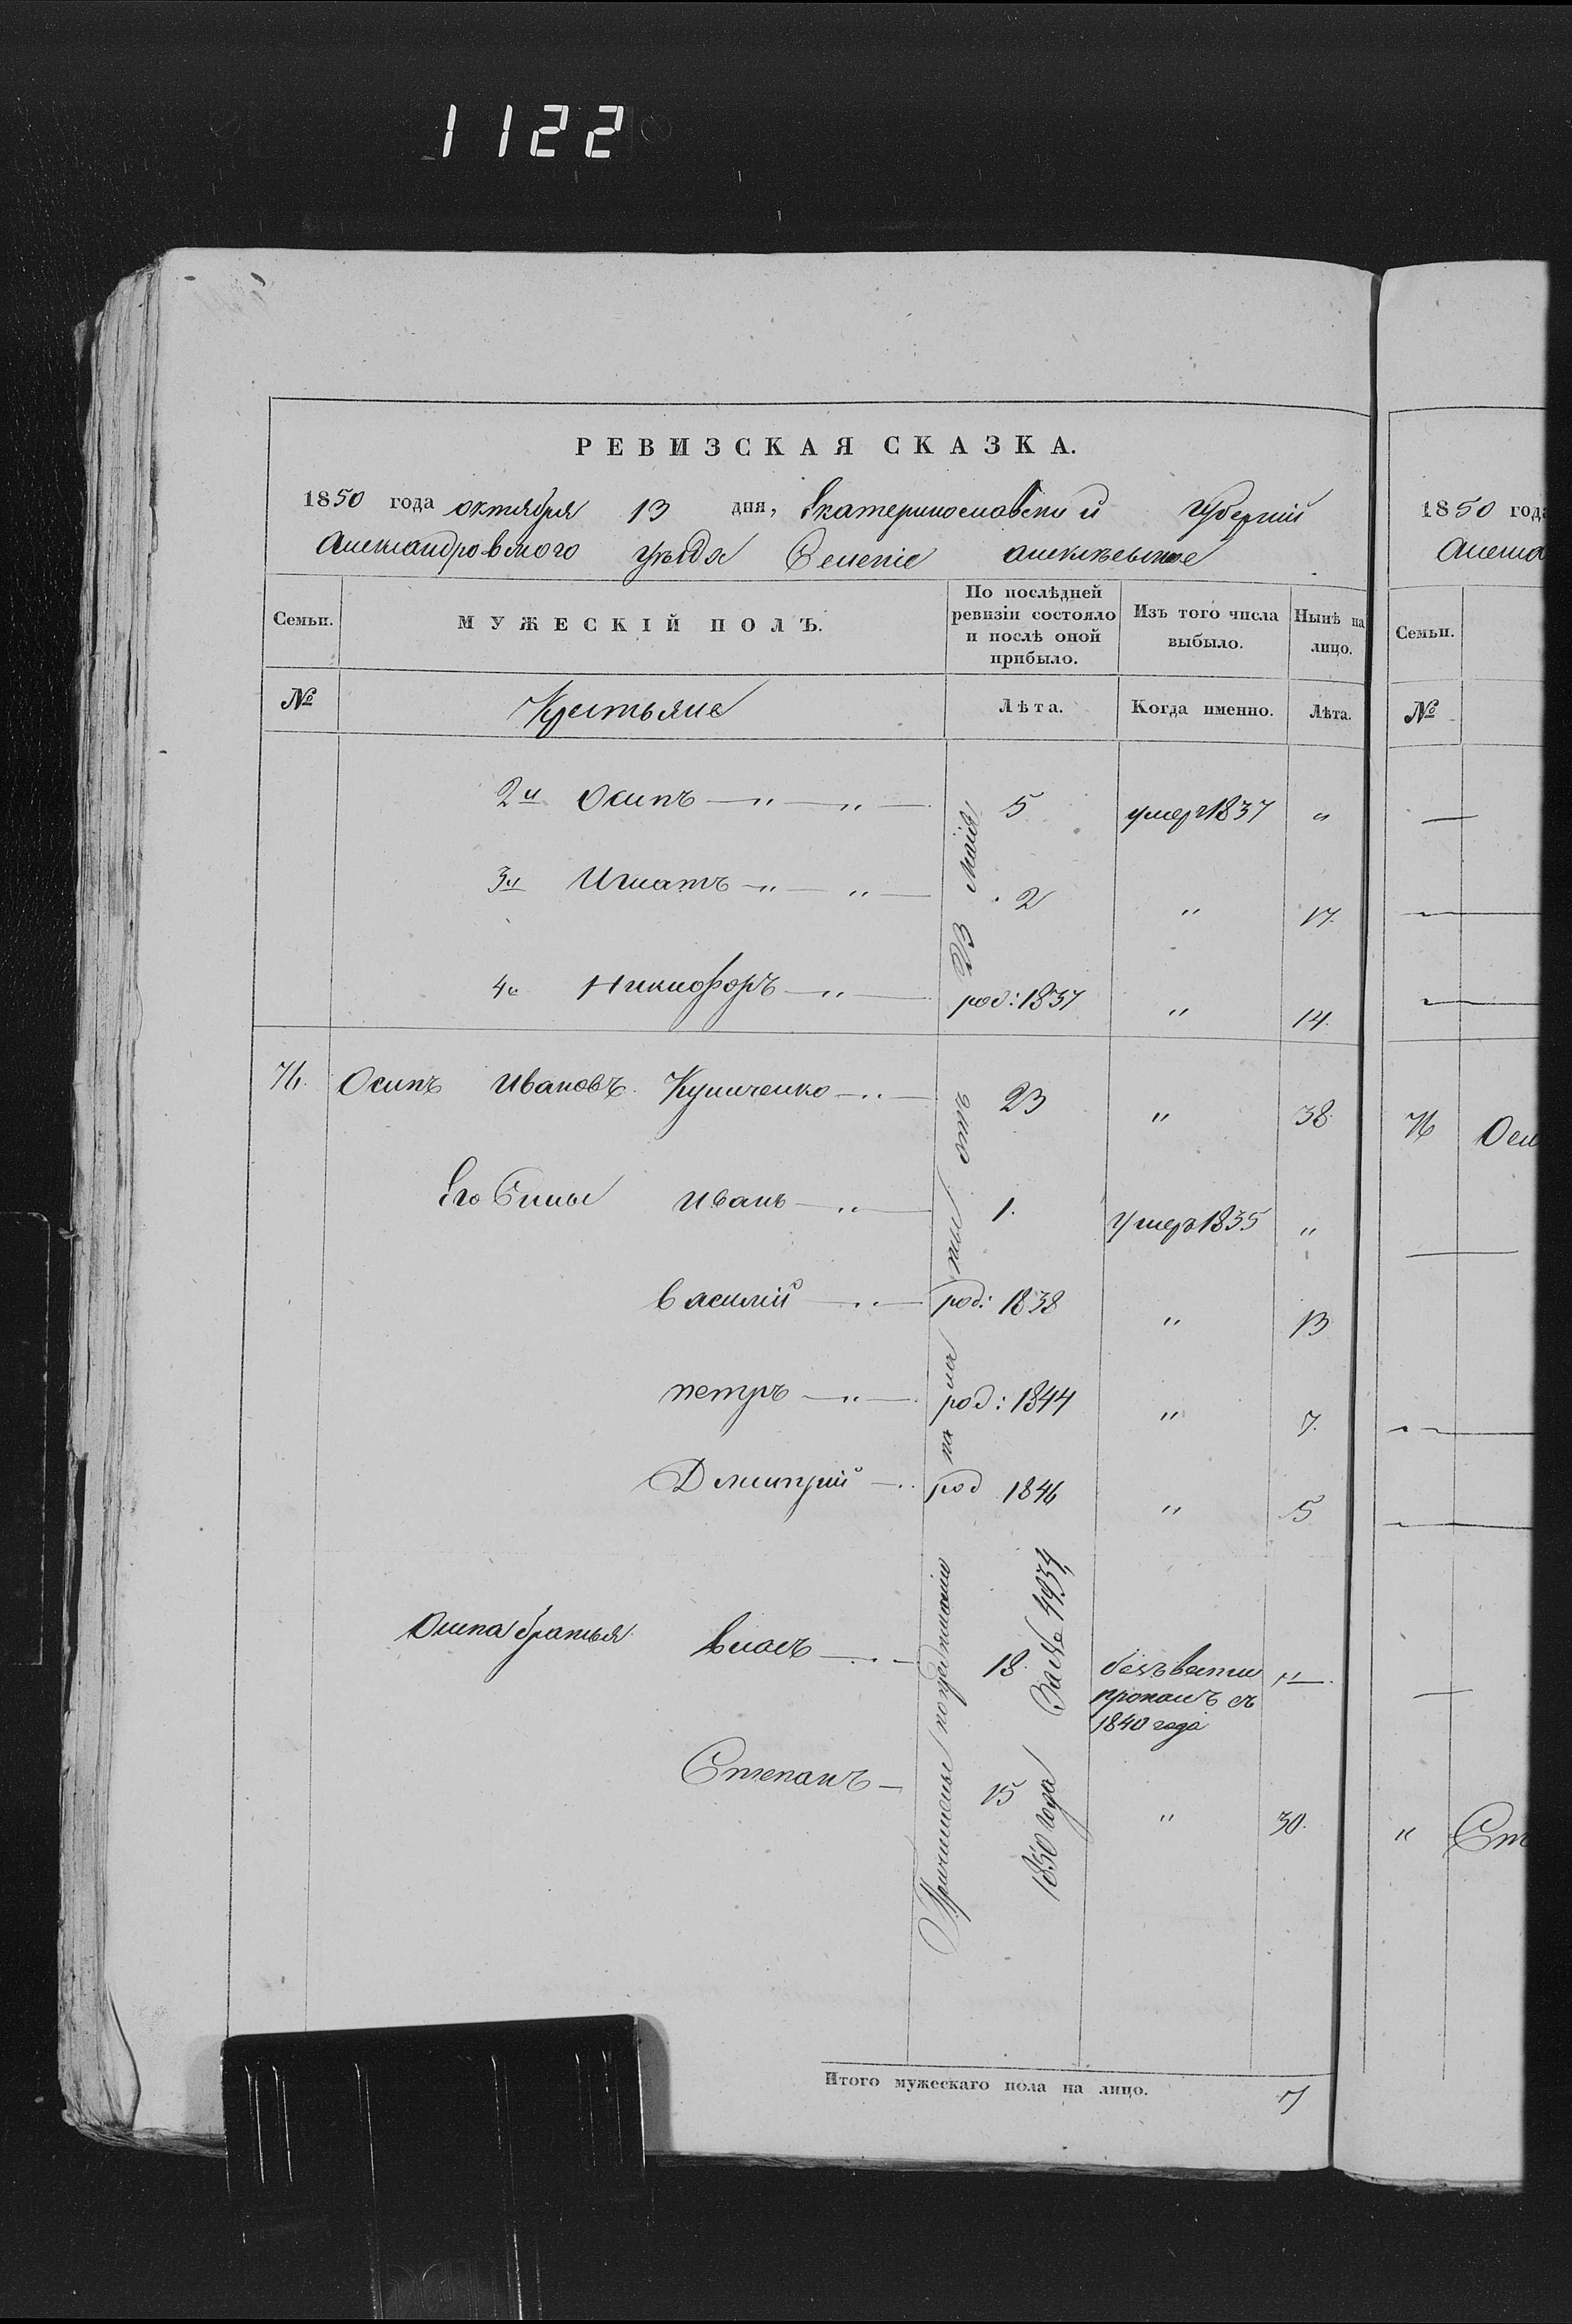 1122
РЕВИЗСКАЯ СКАЗКА.
1850 года октября 13 дня, Екатеринославской Губернии
Александровского уезда Селеніе алексѣевское
Семьи.
МУЖЕСКІЙ ПОЛЪ.
По послѣдней
ревизіи состояло
и послѣ оной
прибыло.
Изъ того числа
выбыло.
Нынѣ на
лицо.
№
Крестьяне
Лѣта.
Когда именно.
Лѣта.
2й Осипъ — " — " — 5 умеръ 1837 "
3й Игнатъ — " — " — 2 " 17.
4й Никифоръ — " — род: 1837 " 14.
76. Осипъ Ивановъ Куниченко — " — 23 " 38
Его Сыны Иванъ — " — 1. умеръ 1835 "
василий — " — род: 1838 " 13
петръ — " — род: 1844 " 7.
Дмитрий — " род 1846 " 5
Осипа братья власъ — " — 18. безъвести "
пропалъ съ
1840 года
Степанъ — 15 " 30.
Причислены по предписанію палаты отъ 23 маія
1850 года За № 4934
Итого мужескаго пола на лицо. 7
1850 года
Семьи.
№
76
"